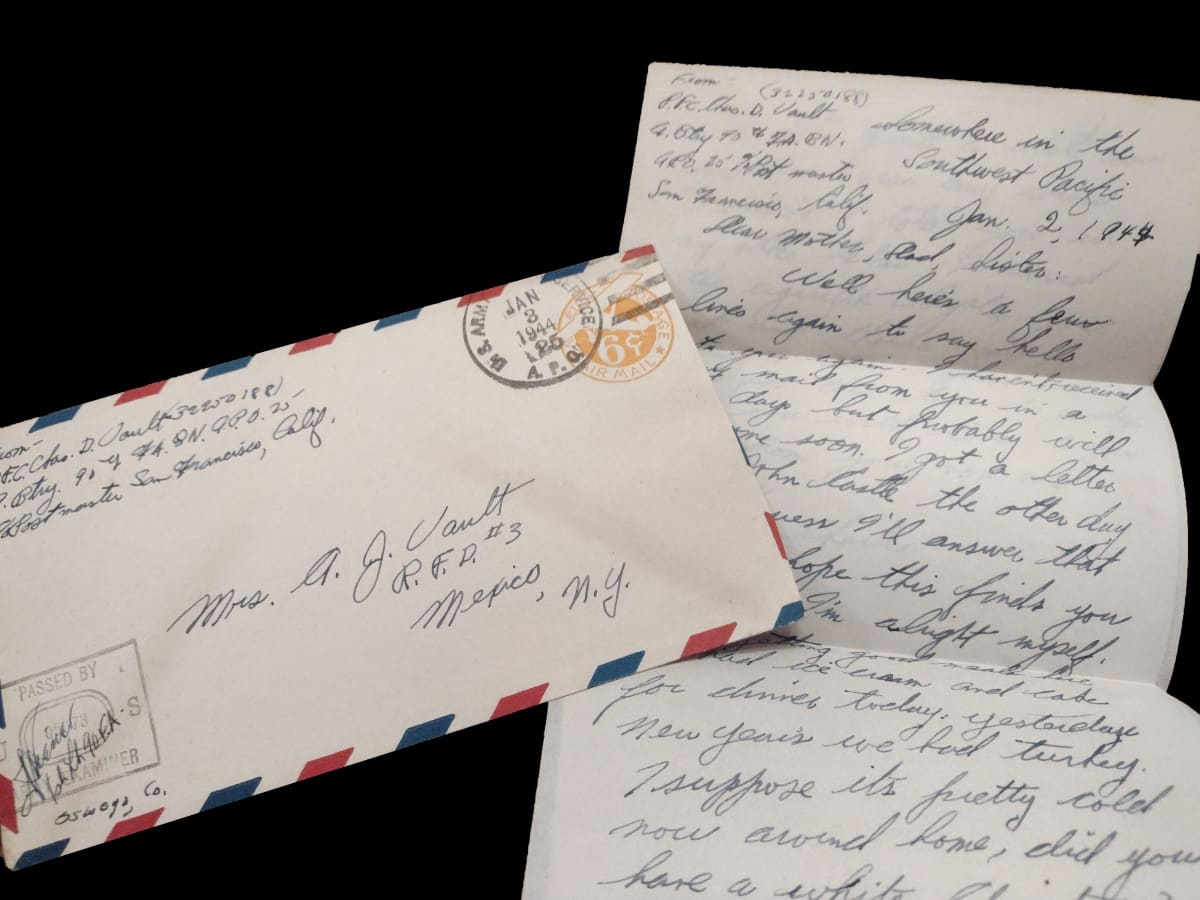 From-
P.F.C. Chas. D. Vault (32250188)
A. Btry. 90th F.A. BN. A.P.O. 25
c/o Postmaster San Francisco, Calif.
U.S. ARMY
SERVICE
JAN
3
1944
25
A.P.O.
POSTAGE
6¢
AIR MAIL
Mrs. A. J. Vault
R.F.D. #3
Mexico, N.Y.
PASSED BY
S
EXAMINER
Oswego, Co.
From-
(32250188)
P.F.C. Chas. D. Vault
A. Btry 90th F.A. BN.
A.P.O. 25 c/o Post master
San Francisco, Calif.
Somewhere in the
Southwest Pacific
Jan. 2, 1944
Dear Mother, Dad, Sister:
Well here's a few
lines again to say hello
to you again. I haven't received
mail from you in a
days but probably will
me soon. I got a letter
John Castle the other day
guess I'll answer that
hope this finds you
I'm alright myself.
had ice cream and cake
for dinner today. yesterday
New Years we had turkey.
I suppose its pretty cold
now around home, did you
have a white